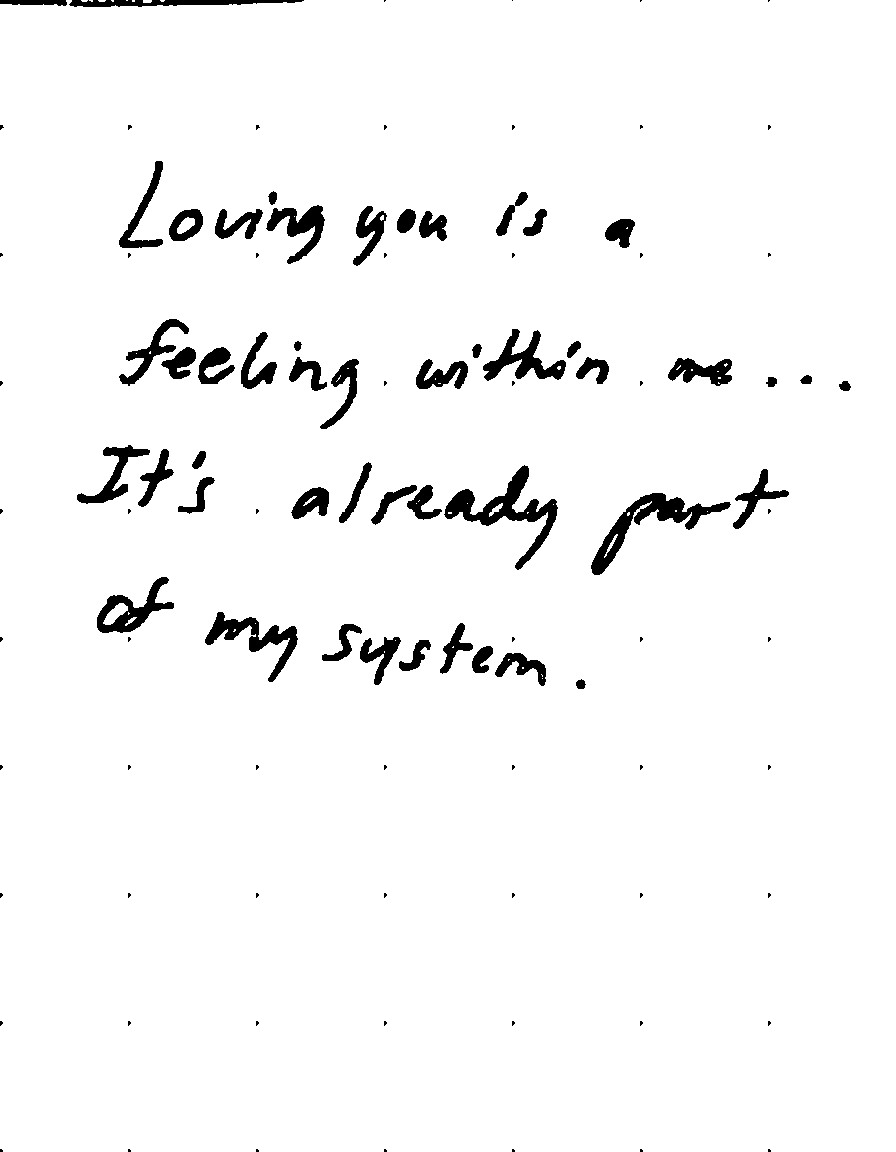 Loving you is a
feeling within me...
It's already part
of my system.